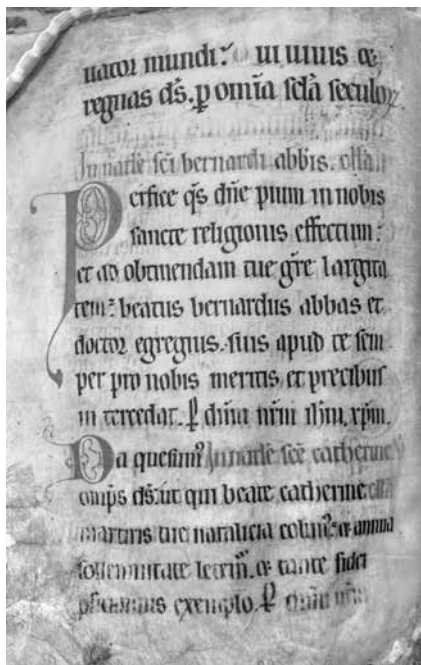 uator mundi. Qui uiuis et
regnas ds. p omia scla seculoꝝ
In natle sci bernardi abbis. colla
Perfice qs dne pium in nobis
sancte religionis effectum:
et ad obtinendam tue gre largita
tem: beatus bernardus abbas et
doctor egregius. suis apud te sem
per pro nobis meritis et precibus
in tercedat. P dnm nrm ihm. xpm.
Da quesumꝰ In natle sce catherine
omps ds: ut qui beate catherine colla
martiris tue natalicia colimꝰ: et annua
sollemnitate letem. et tante fidei
pficiamus exemplo. P dnm nrm